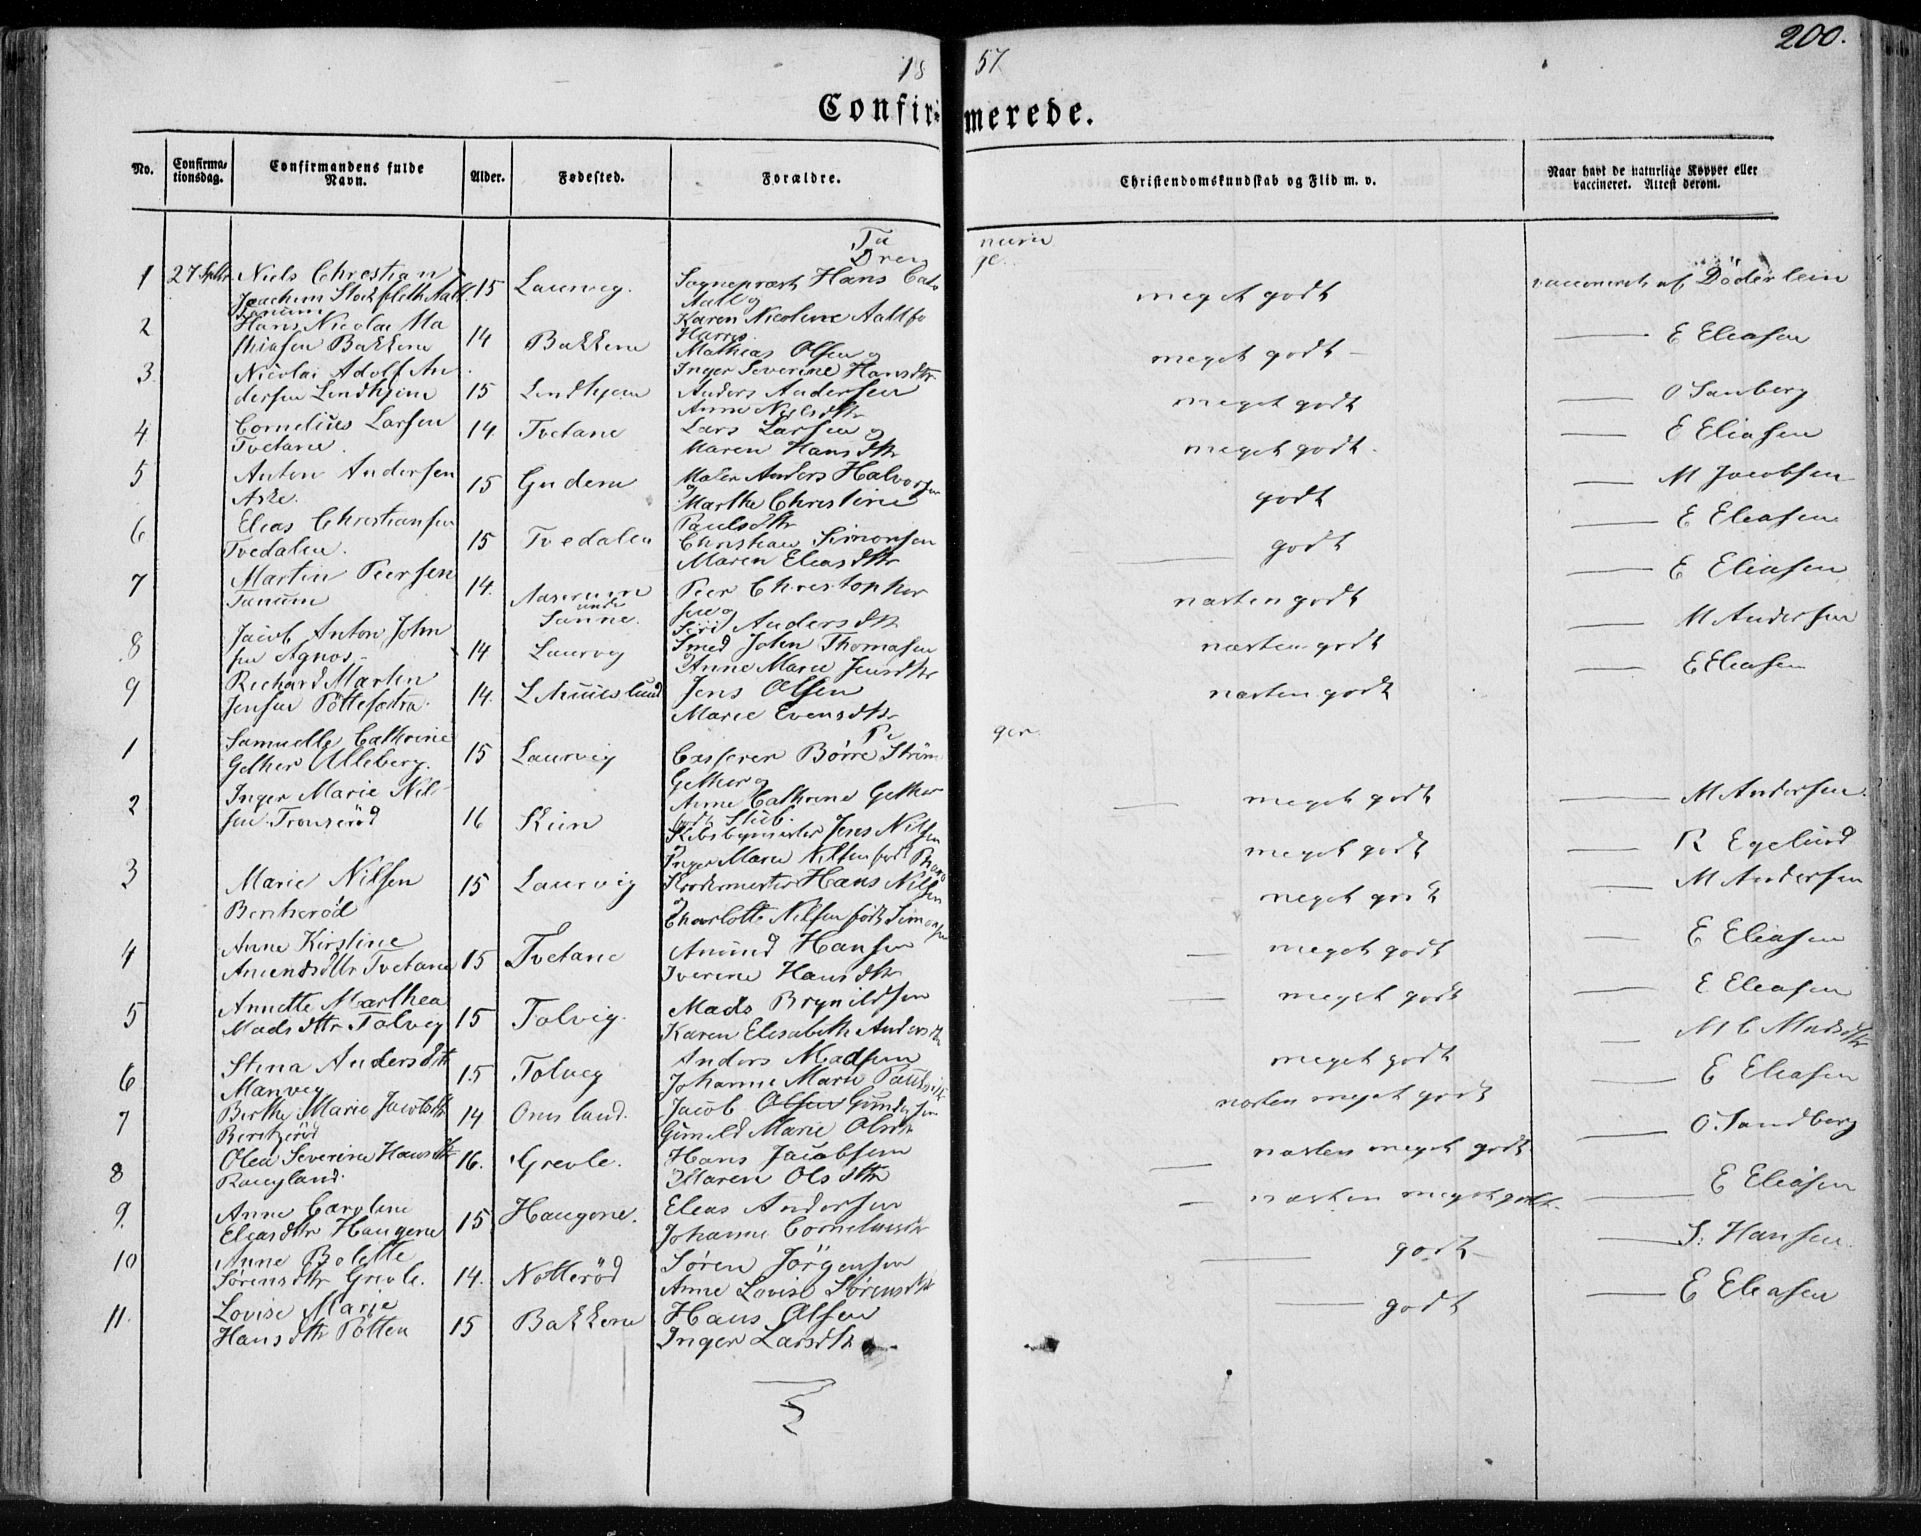 200.
18 57
Confir- merede.
No. Confirma-tionsdag. Confirmandens fulde Navn. Alder. Fødested. Forældre. Christendomskundskab og Flid m. v. Naar havt de naturlige Kopper eller vaccineret. Attest derom.
Ta num
Dren ge.
1 27 Septbr Niels Christian 15 Laurvig. Sognepræst Hans Cato meget godt vaccineret af Döderlein
Joachim Stockfleth Aall Aall og
Tanum Karen Nicoline Aall fo
2 Hans Nicolai Ma 14 Bakkene Harris. meget godt — E Eliasen
thiasen Bakkene Mathias Olsen og
Inger Severine Hansdtr
3. Nicolai Adolf An 15 Lindhjem Anders Andersen meget godt — O Sanberg
dersen Lindhjem Anne Nielsdtr
4 Cornelius Larsen 14 Tvetane Lars Larsen og meget godt. — E Eliasen
Tvetane. Maren Hansdtr
5 Anton Andersen 15 Gudem Maler Anders Halvorsen godt — M Jacobsen
Aske. og Marthe Christine
Paulsdtr
6 Elias Christiansen 15 Tvedalen Christian Simonsen — godt — E Eliasen
Tvedalen. Maren Eliasdtr
7 Martin Peersen 14. Aaserum Peer Christopher næsten godt — E Eliasen
Tanum under Sanne. sen og
Siri Andersdtr
8 Jacob Anton John 14 Laurvig Smed John Thomasen næsten godt — M Andersen
sen Agnos- og Anne Marie Jensdtr
9 Richard Martin 14. L Jens Olsen næsten godt E Eliasen
Jensen Pöttesætra. Marie Evensdtr
Pi ger.
1 Samuelle Cathrine 15 Laurvig Casserer Børre Ström — meget godt — M Andersen.
Gether Alleberg. Gether og
Anne Cathrine Gether
født Stub.
2 Inger Marie Nil- 16 Skien Skibsbygmester Jens Nilsen meget godt — R Egelund
sen Tronsrød og Inger Marie Nilsen født
3 Marie Nilsen 15 Laurvig Hans Nilsen meget godt — M Andersen
Bentzerød og Charlotte Nilsen født Simonsen
4 Anne Kirstine 15 Tvetane Amund Hansen — meget godt — E Eliasen
Amundsdtr Tvetane Iverine Hansdtr
5 Annette Marthea 15 Tolvig. Mads Brynildsen — meget godt — E Eliasen
Madsdttr Tolvig Karen Elisabeth Andersdtr
6 Stina Andersdtr 15 Tolvig Anders Madsen meget godt — M C Madsdtr
Manvig Johanne Marie Paulsdtr
7 Berthe Marie Jacobsdtr 14 Omsland. Jacob Olsen Gundersen næsten meget godt — E Eliasen
Bentzrød Gunild Marie Olsdtr
8 Olea Severine Hansdtr 16. Grevle. Hans Jacobsen — næsten meget godt — O. Sandberg
Maren Olsdtr
9. Anne Caroline 15 Haugene. Elias Andersen — næsten meget godt. — E Eliasen
Eliasdtr Haugene Johanne Corneliusdtr
10 Anne Bolette 14. Notteröd Søren Jörgensen — godt — S: Hansen.
Sørensdtr Grevle. Anne Lovise Sørensdtr
11. Lovise Marie 15 Bakkene Hans Olsen — godt — E Eliasen
Hansdtr Pötten Inger Larsdtr